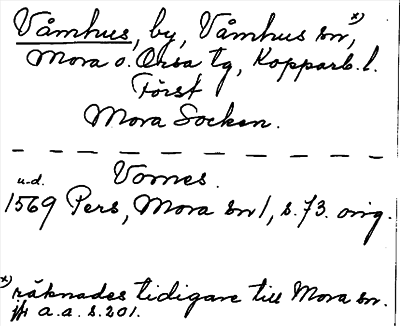 Våmhus, by, Våmhus sn,ˣ⁾
Mora o. Orsa tg, Kopparb. l.
Först
Mora Socken.
Vomes.
u.d.
1569 Pers, Mora sn 1, s. 73. orig.
x) räknades tidigare till Mora sn.
jfr a.a. s. 201.